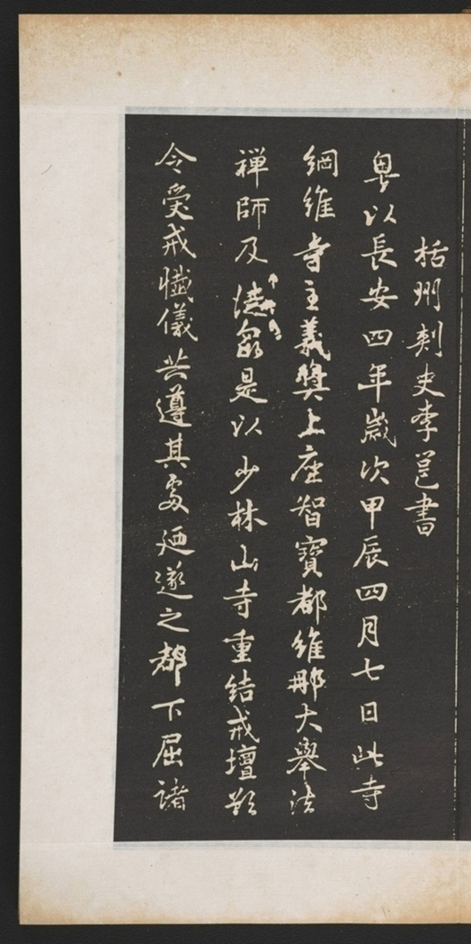 栝州刺史李邕書
粤以長安四年歲次甲辰四月七日此寺
綱維寺主義奬上座智寶都維那大舉法
禪師及徒衆是以少林山寺重結戒壇欲
令受戒懺儀共遵其處廼邀之都下屈諸